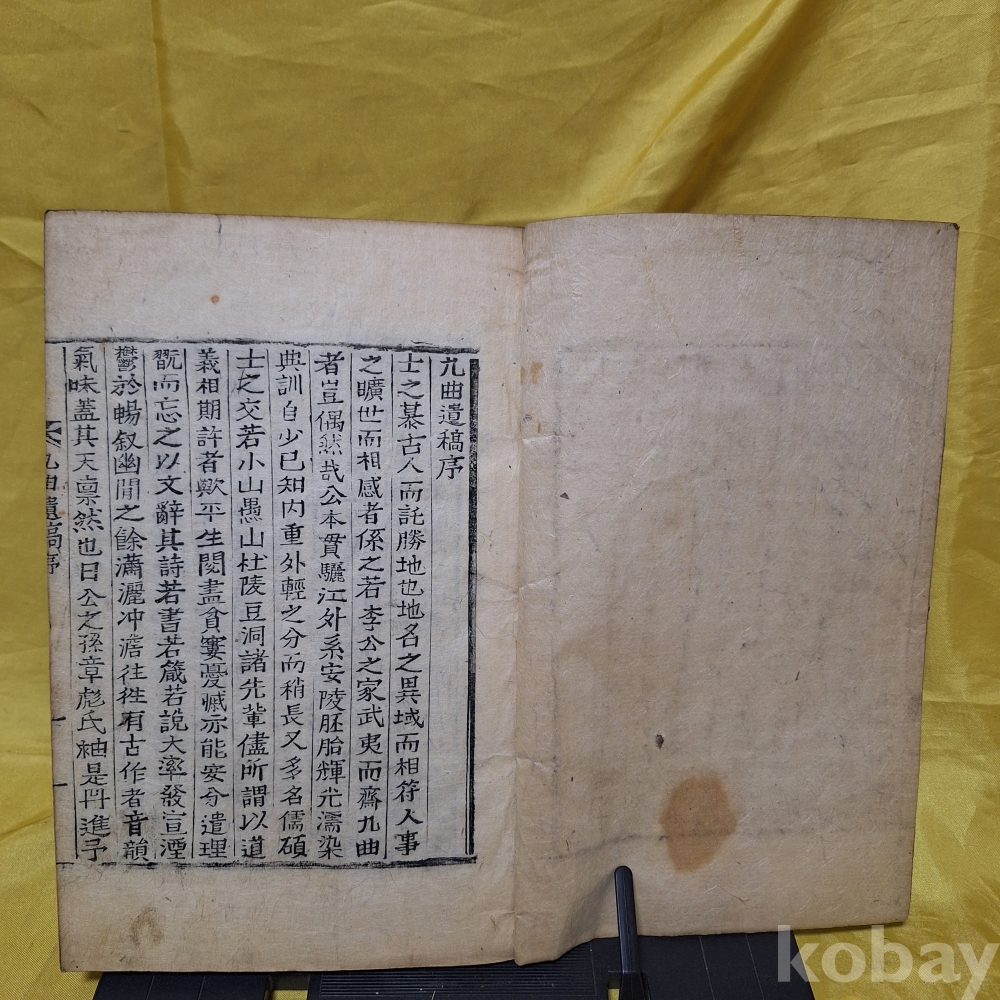 九曲遺稿序
士之慕古人而託勝地也地名之異域而相符人事
之曠世而相感者係之若李公之家武夷而齋九曲
者豈偶然哉公本貫驪江外系安陵胚胎輝光濡染
典訓自少已知內重外輕之分而稍長又多名儒碩
士之交若小山愚山杜陵豆洞諸先輩儘所謂以道
義相期許者歟平生閱盡貧窶憂戚亦能安分遣理
翫而忘之以文辭其詩若書若箴若說大率發宣湮
鬱於暢叙幽閒之餘瀟灑冲澹往往有古作者音韻
氣味蓋其天稟然也日公之孫章彪氏袖是卷進予
九曲遺稿序
一
kobay